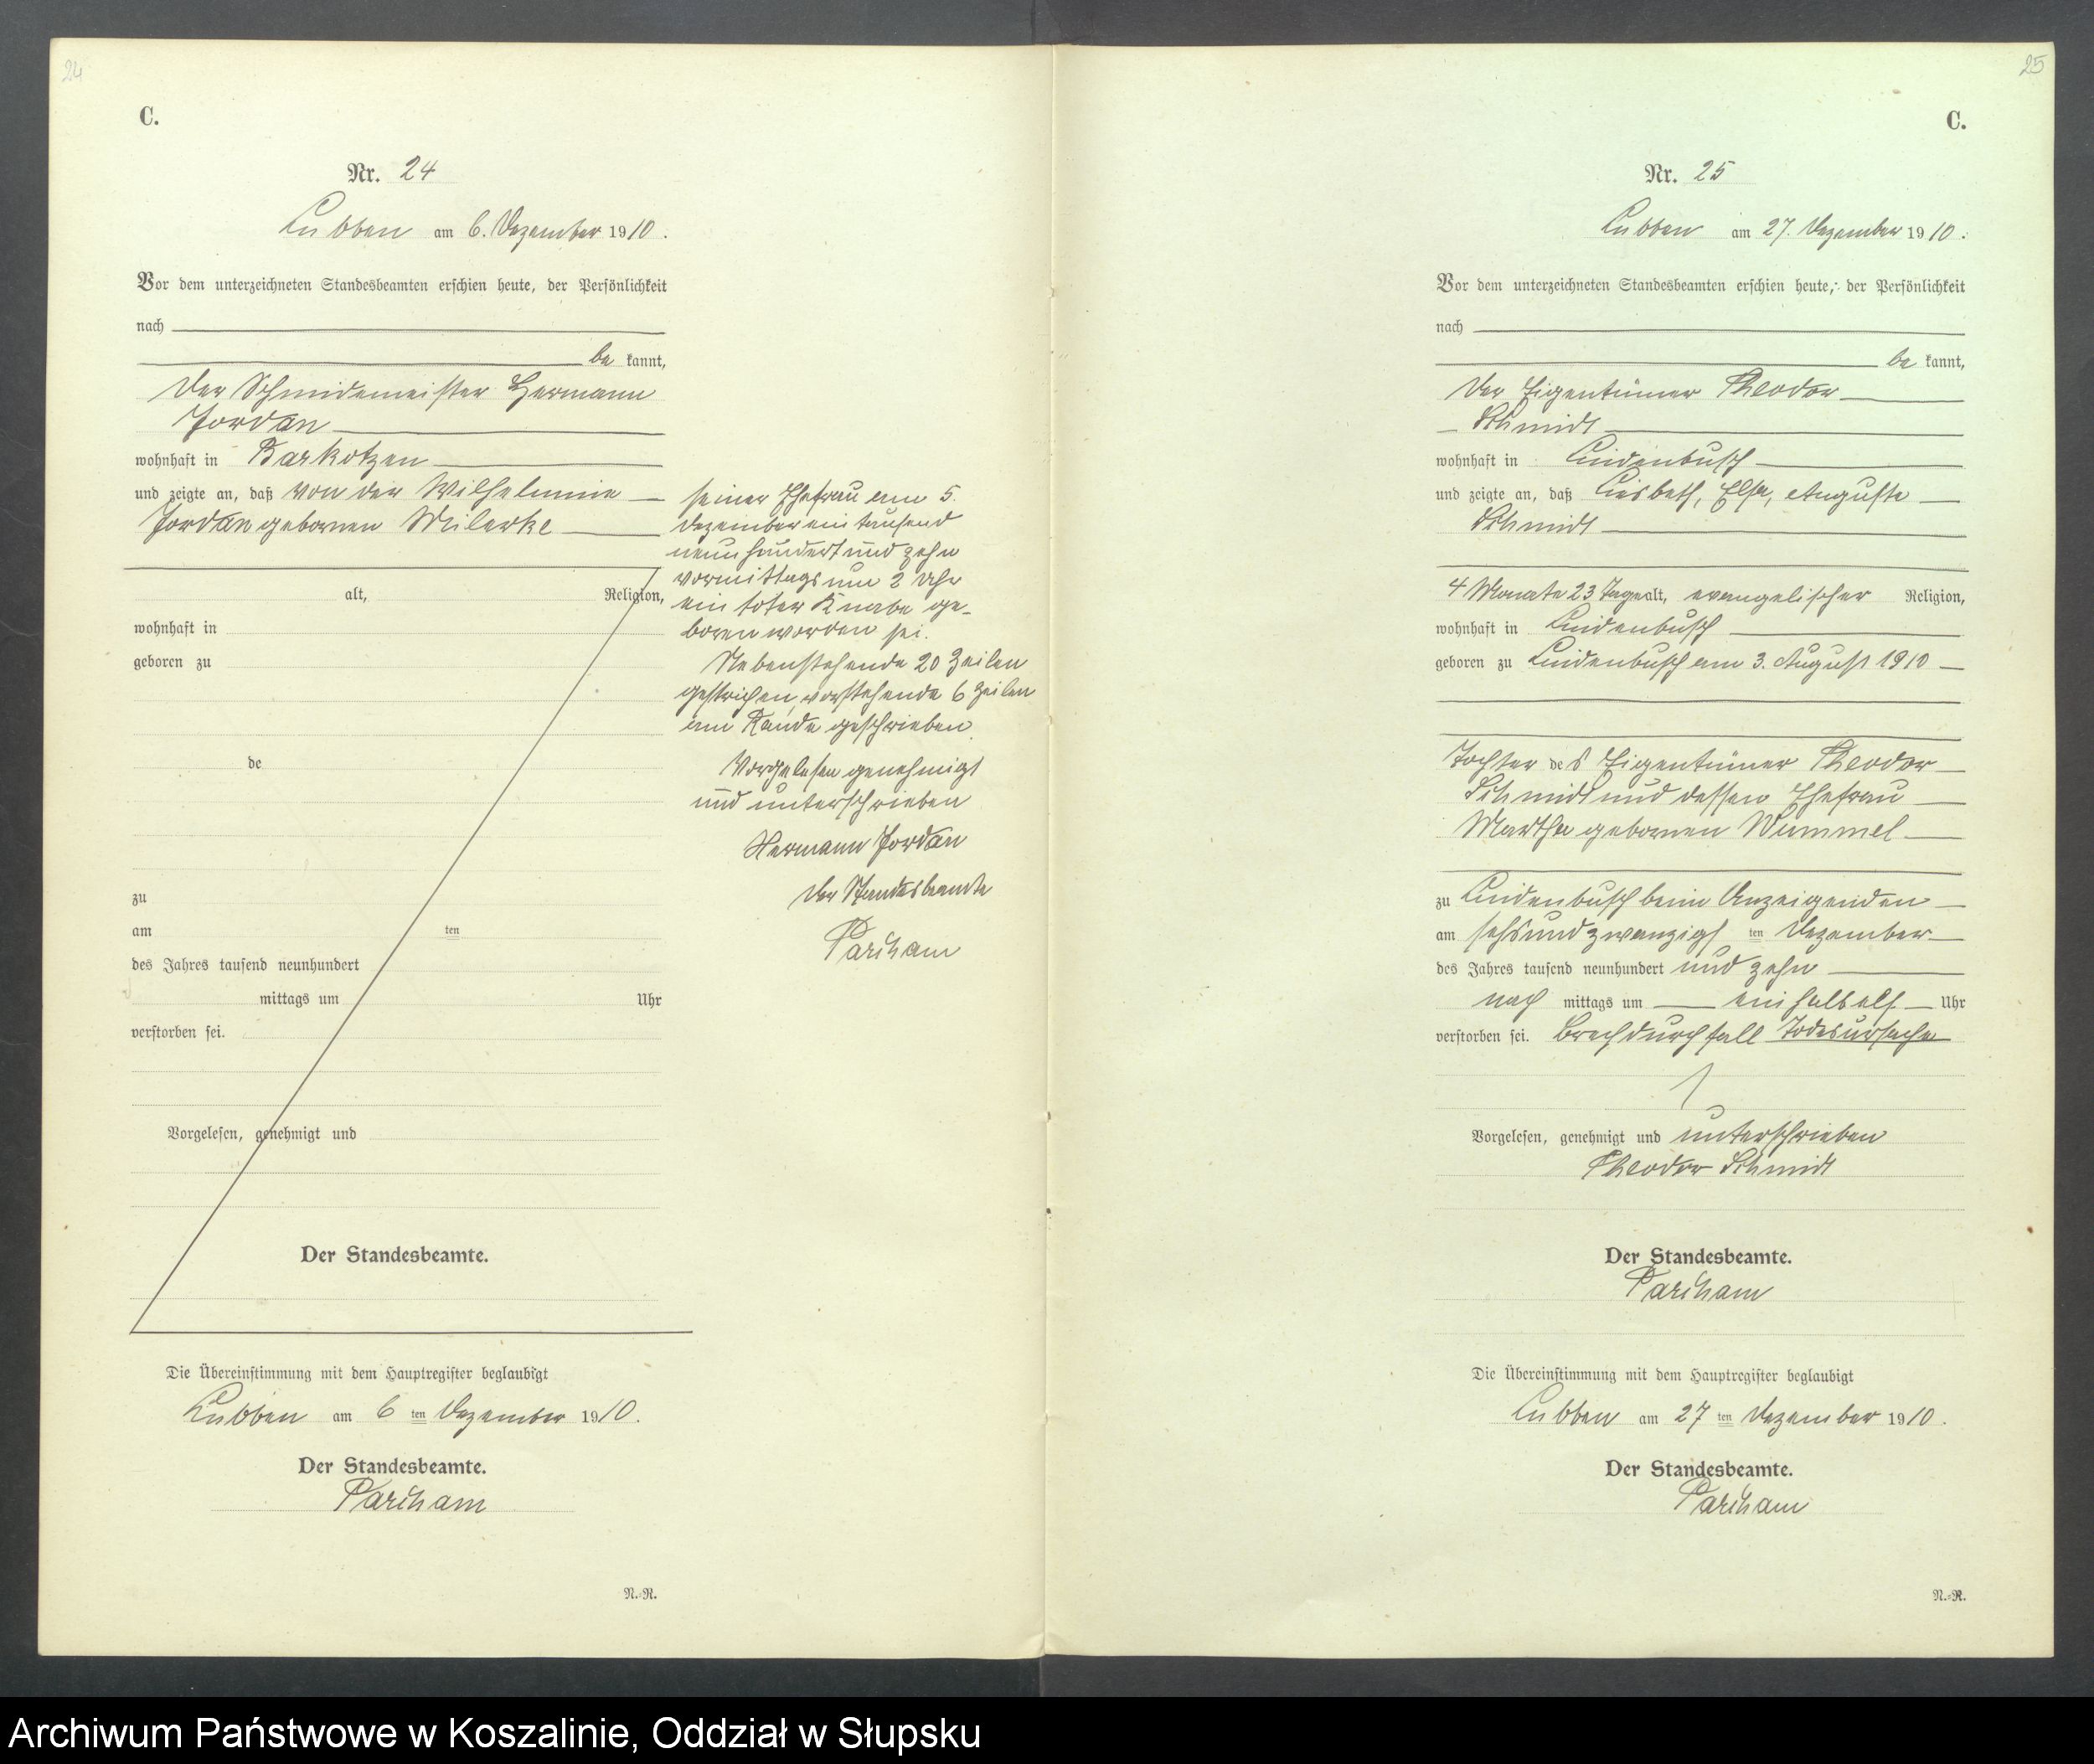 24
C.
Nr. 24
Lubben am 6. Dezember 1910.
Vor dem unterzeichneten Standesbeamten erschien heute, der Persönlichkeit
nach
be kannt,
der Schmidemeister Hermann
Jordan
wohnhaft in Barkotzen
und zeigte an, daß von der Wilhelmine
Jordan gebornen Milerke
alt, Religion,
wohnhaft in
geboren zu
de
zu
am ten
des Jahres tausend neunhundert
mittags um Uhr
verstorben sei.
Vorgelesen, genehmigt und
Der Standesbeamte.
Die Übereinstimmung mit dem Hauptregister beglaubigt
Lubben am 6 ten Dezember 1910.
Der Standesbeamte.
Parcham
N.-R.
seiner Ehefrau am 5.
Dezember ein tausend
neunhundert und zehn
vormittags um 2 Uhr
ein toter Knabe ge-
boren worden sei.
Nebenstehende 20 Zeilen
gestrichen, vorstehende 6 Zeilen
am Rande geschrieben.
Vorgelesen genehmigt
und unterschrieben
Hermann Jordan
Der Standesbeamte
Parcham
25
C.
Nr. 25
Lubben am 27. Dezember 1910.
Vor dem unterzeichneten Standesbeamten erschien heute, der Persönlichkeit
nach
be kannt,
der Eigentümer Theodor
Schmidt
wohnhaft in Lindenbusch
und zeigte an, daß Liesbeth, Else, Auguste
Schmidt
4 Monate 23 Tage alt, evangelischer Religion,
wohnhaft in Lindenbusch
geboren zu Lindenbusch am 3. August 1910
Tochter des Eigentümer Theodor
Schmidt und dessen Ehefrau
Martha gebornen Wummel
zu Lindenbusch beim Anzeigenden
am sechsundzwanzigs ten Dezember
des Jahres tausend neunhundert und zehn
nach mittags um ein halb elf Uhr
verstorben sei. Brechdurchfall Todesursache
Vorgelesen, genehmigt und unterschrieben
Theodor Schmidt
Der Standesbeamte.
Parcham
Die Übereinstimmung mit dem Hauptregister beglaubigt
Lubben am 27 ten Dezember 1910.
Der Standesbeamte.
Parcham
N.-R.
Archiwum Państwowe w Koszalinie, Oddział w Słupsku